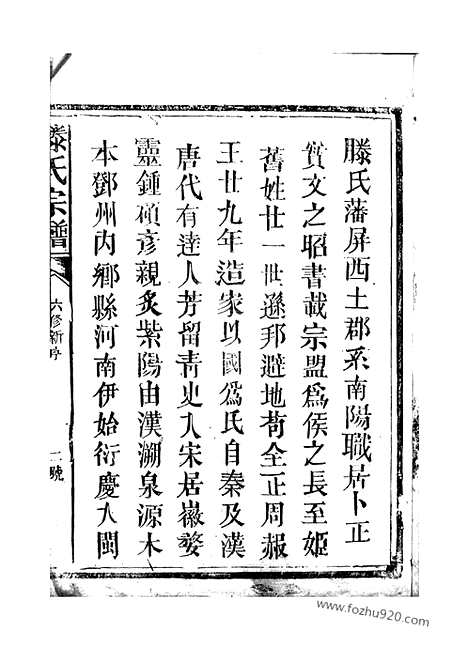 滕氏藩屏西土郡系南陽職居卜正
實文之昭書載宗盟為侯之長至姬
舊姓廿一世遜邦避地苟全正周赧
王廿九年造家以國爲氏自秦及漢
唐代有達人芳留青史入宋居嶶婺
靈鍾碩彥親炙紫陽由漢溯泉源木
本鄧州內鄉縣河南伊始衍慶入閩
滕氏宗譜
六修新序
二號
www.fozhu920.com